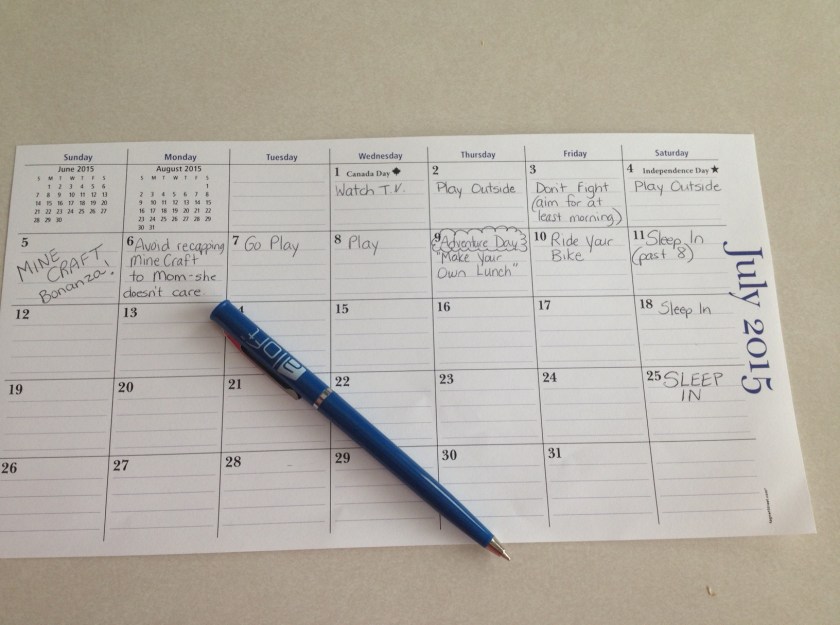 July 2015
Sunday Monday Tuesday Wednesday Thursday Friday Saturday
June 2015
S M T W T F S
1 2 3 4 5 6
7 8 9 10 11 12 13
14 15 16 17 18 19 20
21 22 23 24 25 26 27
28 29 30
August 2015
S M T W T F S
1
2 3 4 5 6 7 8
9 10 11 12 13 14 15
16 17 18 19 20 21 22
23 24 25 26 27 28 29
30 31
1 Canada Day
Watch T.V.
2
Play Outside
3
Don't Fight
(aim for at
least morning)
4 Independence Day
Play Outside
5
MINE
CRAFT
Bonanza!
6 Avoid recapping
Mine Craft
to Mom-she
doesn't care
7 Go Play
8 Play
9
Adventure Day
"Make Your
Own Lunch"
10 Ride Your
Bike
11 Sleep In
(past 8)
12
13
15
16
17
18 Sleep In
19
20
21
22
23
24
25 SLEEP
IN
26
27
28
29
30
31
aloft